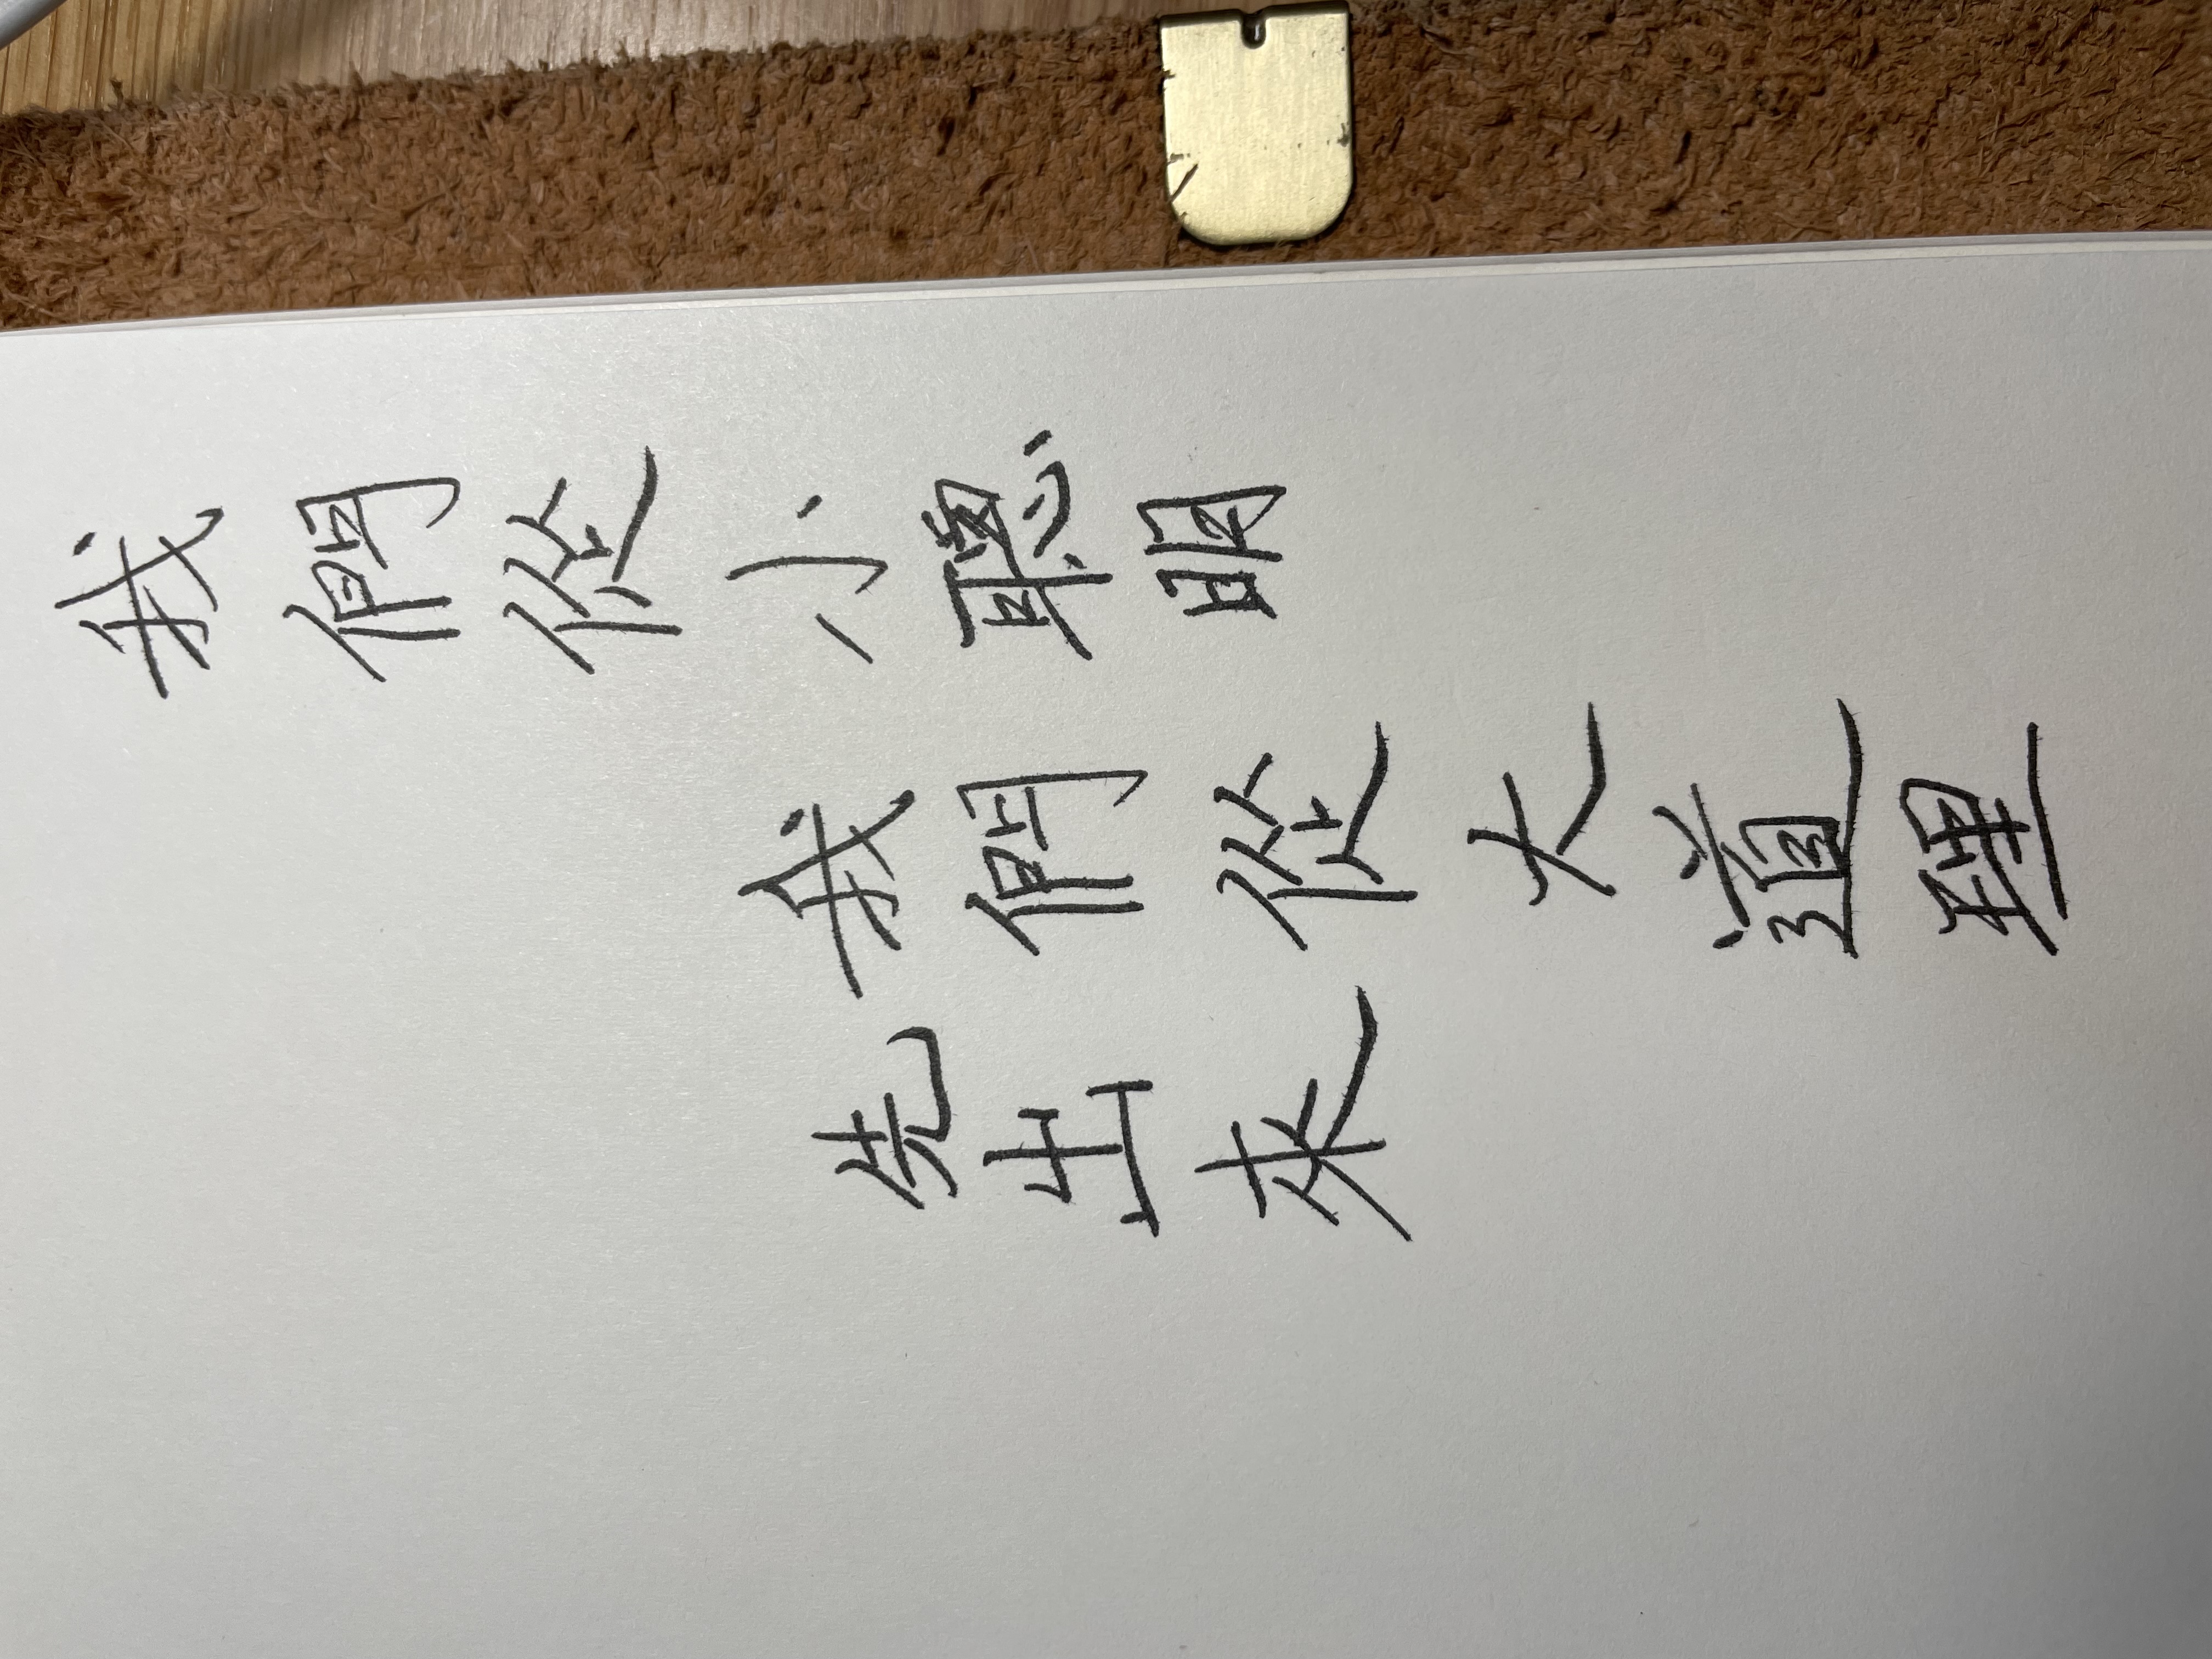 我們從小聰明
我們從大道理
先出來